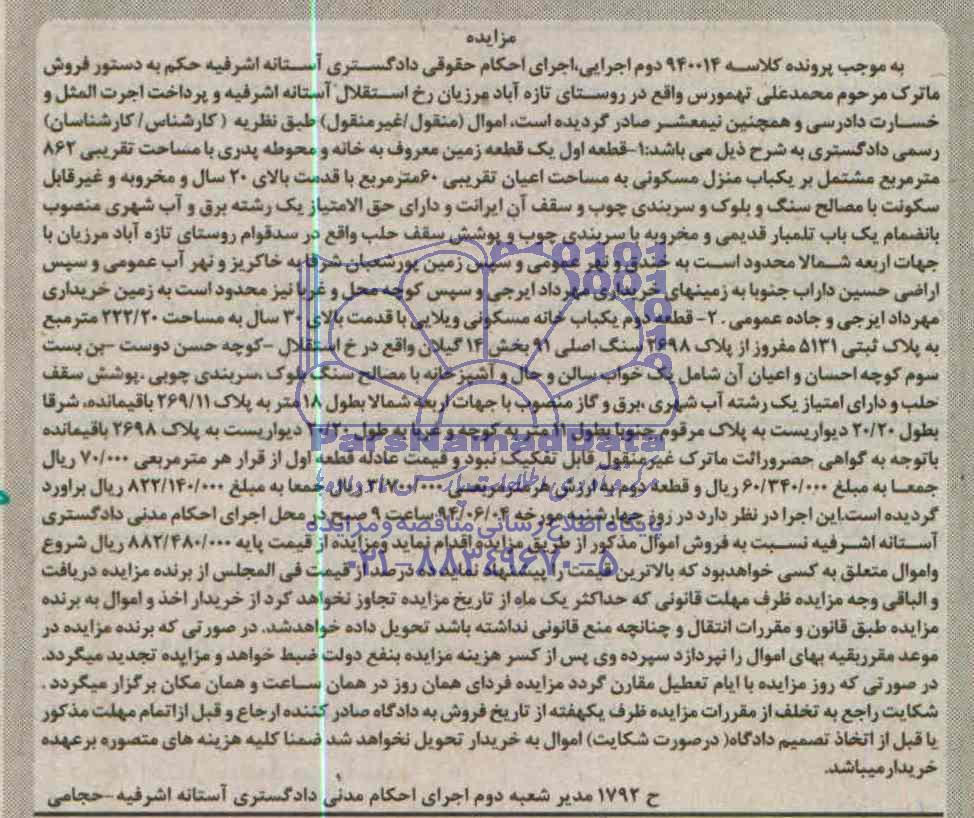 مزایده
به موجب پرونده کلاسه ۹۴۰۰۱۴ دوم اجرایی،اجرای احکام حقوقی دادگستری آستانه اشرفیه حکم به دستور فروش
ماترک مرحوم محمدعلی تهمورس واقع در روستای تازه آباد مرزیان رخ استقلال آستانه اشرفیه و پرداخت اجرت المثل و
خسارت دادرسی و همچنین نیمعشر صادر گردیده است، اموال (منقول/غیرمنقول) طبق نظریه (کارشناس/کارشناسان)
رسمی دادگستری به شرح ذیل می باشد:۱-قطعه اول یک قطعه زمین معروف به خانه و محوطه پدری با مساحت تقریبی ۸۶۲
مترمربع مشتمل بر یکباب منزل مسکونی به مساحت اعیان تقریبی ۶۰مترمربع با قدمت بالای ۲۰ سال و مخروبه و غیرقابل
سکونت با مصالح سنگ و بلوک و سربندی چوب و سقف آن ایرانت و دارای حق الامتیاز یک رشته برق و آب شهری منصوب
بانضمام یک باب تلمبار قدیمی و مخروبه با سربندی چوب و پوشش سقف حلب واقع در سدقوام روستای تازه آباد مرزیان با
جهات اربعه شمالا محدود است به خندق و نهر عمومی و سپس زمین پورشعبان شرقا به خاکریز و نهر آب عمومی و سپس
اراضی حسین داراب جنوبا به زمینهای خریداری مهرداد ایرجی و سپس کوچه محل و غربا نیز محدود است به زمین خریداری
مهرداد ایرجی و جاده عمومی .۲- قطعه دوم یکباب خانه مسکونی ویلایی با قدمت بالای ۳۰ سال به مساحت ۲۲۲/۲۰ مترمبع
به پلاک ثبتی ۵۱۳۱ مفروز از پلاک ۲۶۹۸ سنگ اصلی ۹۱ بخش ۱۴ گیلان واقع در خ استقلال -کوچه حسن دوست -بن بست
سوم کوچه احسان و اعیان آن شامل یک خواب سالن و حال و آشپزخانه با مصالح سنگ بلوک ،سربندی چوبی .پوشش سقف
حلب و دارای امتیاز یک رشته آب شهری ،برق و گاز منصوب با جهات اربعه شمالا بطول ۱۸ متر به پلاک ۲۶۹/۱۱ باقیمانده، شرقا
بطول ۲۰/۲۰ دیواریست به پلاک مرقوم جنوبا بطول ۱۱ متر به کوچه و غربا به طول ۲۰/۲۰ دیواریست به پلاک ۲۶۹۸ باقیمانده
باتوجه به گواهی حصروراثت ماترک غیرمنقول قابل تفکیک نبود و قیمت عادله قطعه اول از قرار هر مترمربعی ۷۰/۰۰۰ ریال
جمعا به مبلغ ۶۰/۳۴۰/۰۰۰ ریال و قطعه دوم به ارزش هر مترمربعی ۳/۷۰۰/۰۰۰ ریال جمعا به مبلغ ۸۲۲/۱۴۰/۰۰۰ ریال براورد
گردیده است.این اجرا در نظر دارد در روز چهارشنبه مورخه ۹۴/۰۶/۰۴ ساعت ۹ صبح در محل اجرای احکام مدنی دادگستری
آستانه اشرفیه نسبت به فروش اموال مذکور از طریق مزایده اقدام نماید ومزایده از قیمت پایه ۸۸۲/۴۸۰/۰۰۰ ریال شروع
واموال متعلق به کسی خواهدبود که بالاترین قیمت را پیشنهاد نماید.ده درصد از قیمت فی المجلس از برنده مزایده دریافت
و الباقی وجه مزایده ظرف مهلت قانونی که حداکثر یک ماه از تاریخ مزایده تجاوز نخواهد کرد از خریدار اخذ و اموال به برنده
مزایده طبق قانون و مقررات انتقال و چنانچه منع قانونی نداشته باشد تحویل داده خواهدشد. در صورتی که برنده مزایده در
موعد مقرربقیه بهای اموال را نپردازد سپرده وی پس از کسر هزینه مزایده بنفع دولت ضبط خواهد و مزایده تجدید میگردد.
در صورتی که روز مزایده با ایام تعطیل مقارن گردد مزایده فردای همان روز در همان ساعت و همان مکان برگزار میگردد .
شکایت راجع به تخلف از مقررات مزایده ظرف یکهفته از تاریخ فروش به دادگاه صادر کننده ارجاع و قبل ازاتمام مهلت مذکور
یا قبل از اتخاذ تصمیم دادگاه( درصورت شکایت) اموال به خریدار تحویل نخواهد شد ضمنا کلیه هزینه های متصوره برعهده
خریدارمیباشد.
ح ۱۷۹۲ مدیر شعبه دوم اجرای احکام مدنی دادگستری آستانه اشرفیه-حجامی
ParsNamadData
پایگاه اطلاع رسانی مناقصه و مزایده
۰۲۱-۸۸۳۴۹۶۷۰-۵